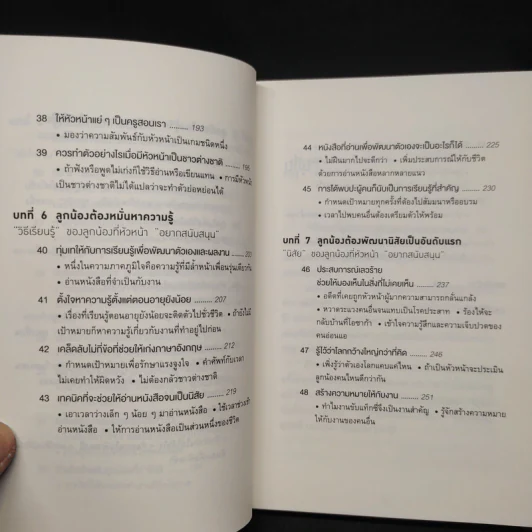 38 ให้หัวหน้าแย่ ๆ เป็นครูสอนเรา ......... 193
• มองว่าความสัมพันธ์กับหัวหน้าเป็นเกมชนิดหนึ่ง
39 ควรทำตัวอย่างไรเมื่อมีหัวหน้าเป็นชาวต่างชาติ ......... 198
• ถ้าฟังหรือพูดไม่เก่งก็ใช้วิธีอ่านหรือเขียนแทน • การมีหัวหน้า
เป็นชาวต่างชาติไม่ได้แปลว่าจะทำตัวย่อหย่อนได้
บทที่ 6 ลูกน้องต้องหมั่นหาความรู้
"วิธีเรียนรู้" ของลูกน้องที่หัวหน้า "อยากสนับสนุน"
40 ทุ่มเทให้กับการเรียนรู้เพื่อพัฒนาตัวเองและผลงาน
• หนึ่งในความภาคภูมิใจคือความรู้ที่มีล้ำหน้าเพื่อนรุ่นเดียวกัน
อ่านหนังสือที่จำเป็นกับงาน
41 ตั้งใจหาความรู้ตั้งแต่ตอนอายุยังน้อย ......... 207
• เรื่องที่เรียนรู้ตอนอายุน้อยจะติดตัวไปชั่วชีวิต • ถ้ายังไม่มี
เป้าหมายก็หาความรู้เกี่ยวกับงานที่ทำอยู่ไปก่อน
42 เคล็ดลับไม่กี่ข้อที่ช่วยให้เก่งภาษาอังกฤษ ......... 212
• กำหนดเป้าหมายเพื่อรักษาแรงจูงใจ • คำศัพท์กับเวลา
ไม่เคยทำให้ผิดหวัง • ไม่ต้องกลัวชาวต่างชาติ
43 เทคนิคที่จะช่วยให้อ่านหนังสือจนเป็นนิสัย ......... 219
• เอาเวลาว่างเล็ก ๆ น้อย ๆ มาอ่านหนังสือ • ใช้เวลาช่วงเช้า
อ่านหนังสือ • ให้การอ่านหนังสือเป็นส่วนหนึ่งของชีวิต
44 หนังสือที่อ่านเพื่อพัฒนาตัวเองจะเป็นอะไรก็ได้ ......... 225
• ไม่ฝืนมากไปจะดีกว่า • เพิ่มประสบการณ์ให้กับชีวิต
ด้วยการอ่านหนังสือหลากหลายแนว
45 การได้พบปะผู้คนก็นับเป็นการเรียนรู้ที่สำคัญ ......... 230
• กำหนดเป้าหมายทุกครั้งที่ต้องไปสัมมนาหรืออบรม
• เวลาไปพบคนอื่นต้องเตรียมตัวให้พร้อม
บทที่ 7 ลูกน้องต้องพัฒนานิสัยเป็นอันดับแรก
"นิสัย" ของลูกน้องที่หัวหน้า "อยากสนับสนุน"
46 ประสบการณ์เลวร้าย
ช่วยให้มองเห็นในสิ่งที่ไม่เคยเห็น ......... 237
• อดีตที่เคยถูกหัวหน้าผู้มากความสามารถกลั่นแกล้ง
• หวาดระแวงคนอื่นจนแทบเป็นโรคประสาท • ร้องไห้จะ
กลับบ้านที่โอซาก้า • เข้าใจความรู้สึกและความเจ็บปวดของ
คนอ่อนแอ
47 รู้ไว้ว่าโลกกว้างใหญ่กว่าที่คิด ......... 246
• เพิ่งรู้ว่าตัวเองโลกแคบแค่ไหน • ถ้าเป็นหัวหน้าจะประเมิน
ลูกน้องคนไหนดีกว่ากัน
48 สร้างความหมายให้กับงาน ......... 251
• ทำไมงานขับแท็กซี่จึงเป็นงานสำคัญ • รู้จักสร้างความหมาย
ให้กับงานของคนอื่น